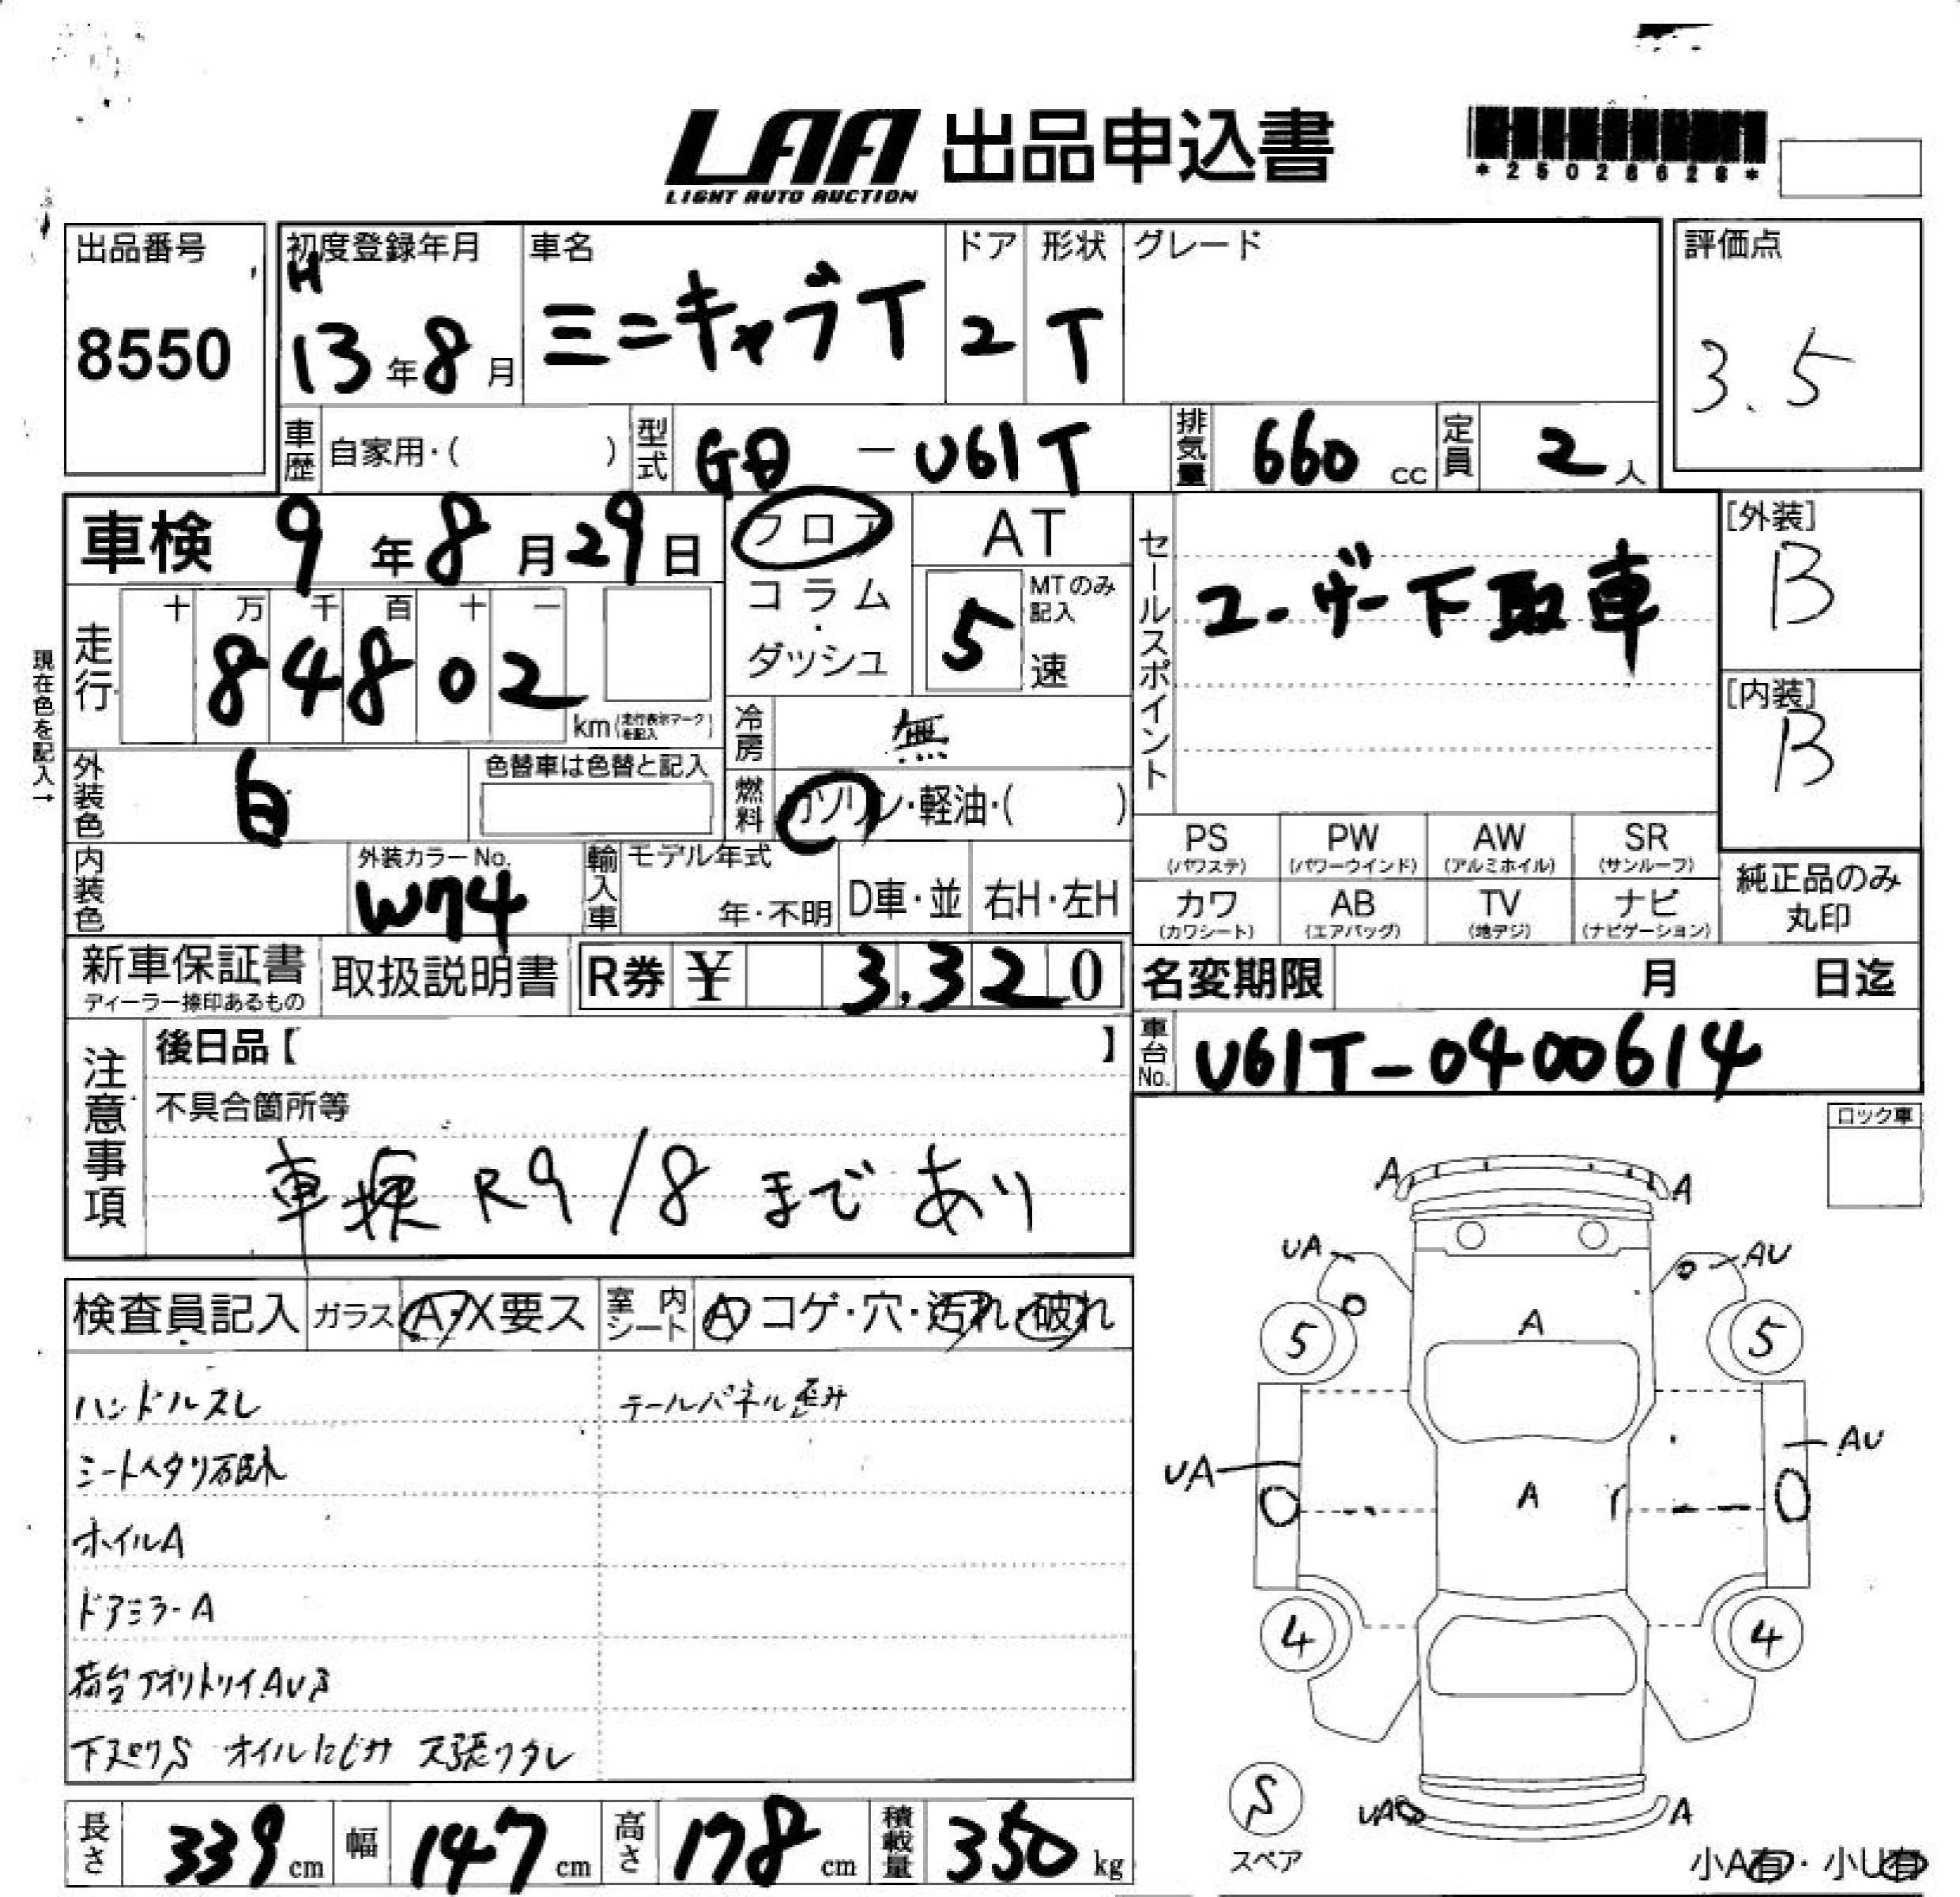 LAA 出品申込書
LIGHT AUTO AUCTION
*25028628*
出品番号
8550
初度登録年月
H
13年8月
車名
ミニキャブT
ドア
2
形状
T
グレード
評価点
3.5
車歴 自家用・( )
型式 GD - U61T
排気量 660 cc
定員 2人
車検 9年8月29日
フロア
コラム
・
ダッシュ
AT
MTのみ記入
5速
セールスポイント
ユーザー下取車
[外装]
B
[内装]
B
現在色を記入→
走行 十 万 千 百 十 一
84802
km(走行表示マークを記入)
冷房 無
外装色 白
色替車は色替と記入
燃料 ガソリン・軽油・( )
内装色
外装カラーNo.
W74
輸入車 モデル年式
年・不明
D車・並
右H・左H
PS (パワステ)
PW (パワーウインド)
AW (アルミホイル)
SR (サンルーフ)
カワ (カワシート)
AB (エアバッグ)
TV (地デジ)
ナビ (ナビゲーション)
純正品のみ
丸印
新車保証書
ディーラー捺印あるもの
取扱説明書
R券 ¥ 3,320
名変期限 月 日迄
車台No. U61T-0400614
注意事項
後日品【 】
不具合箇所等
車検 R9/8 まで あり
ロック車
検査員記入
ガラス A・X要ス
室内シート A コゲ・穴・汚れ・破れ
ハンドルスレ
テールパネル歪み
シートヘタリ破れ
ホイルA
ドアミラーA
荷台アオリトリイAU
下廻りS オイルにじみ
A A
UA AU
5 A 5
UA A AU
4 4
S
スペア
UA A
小A有・小U有
長さ 339 cm
幅 147 cm
高さ 178 cm
積載量 350 kg